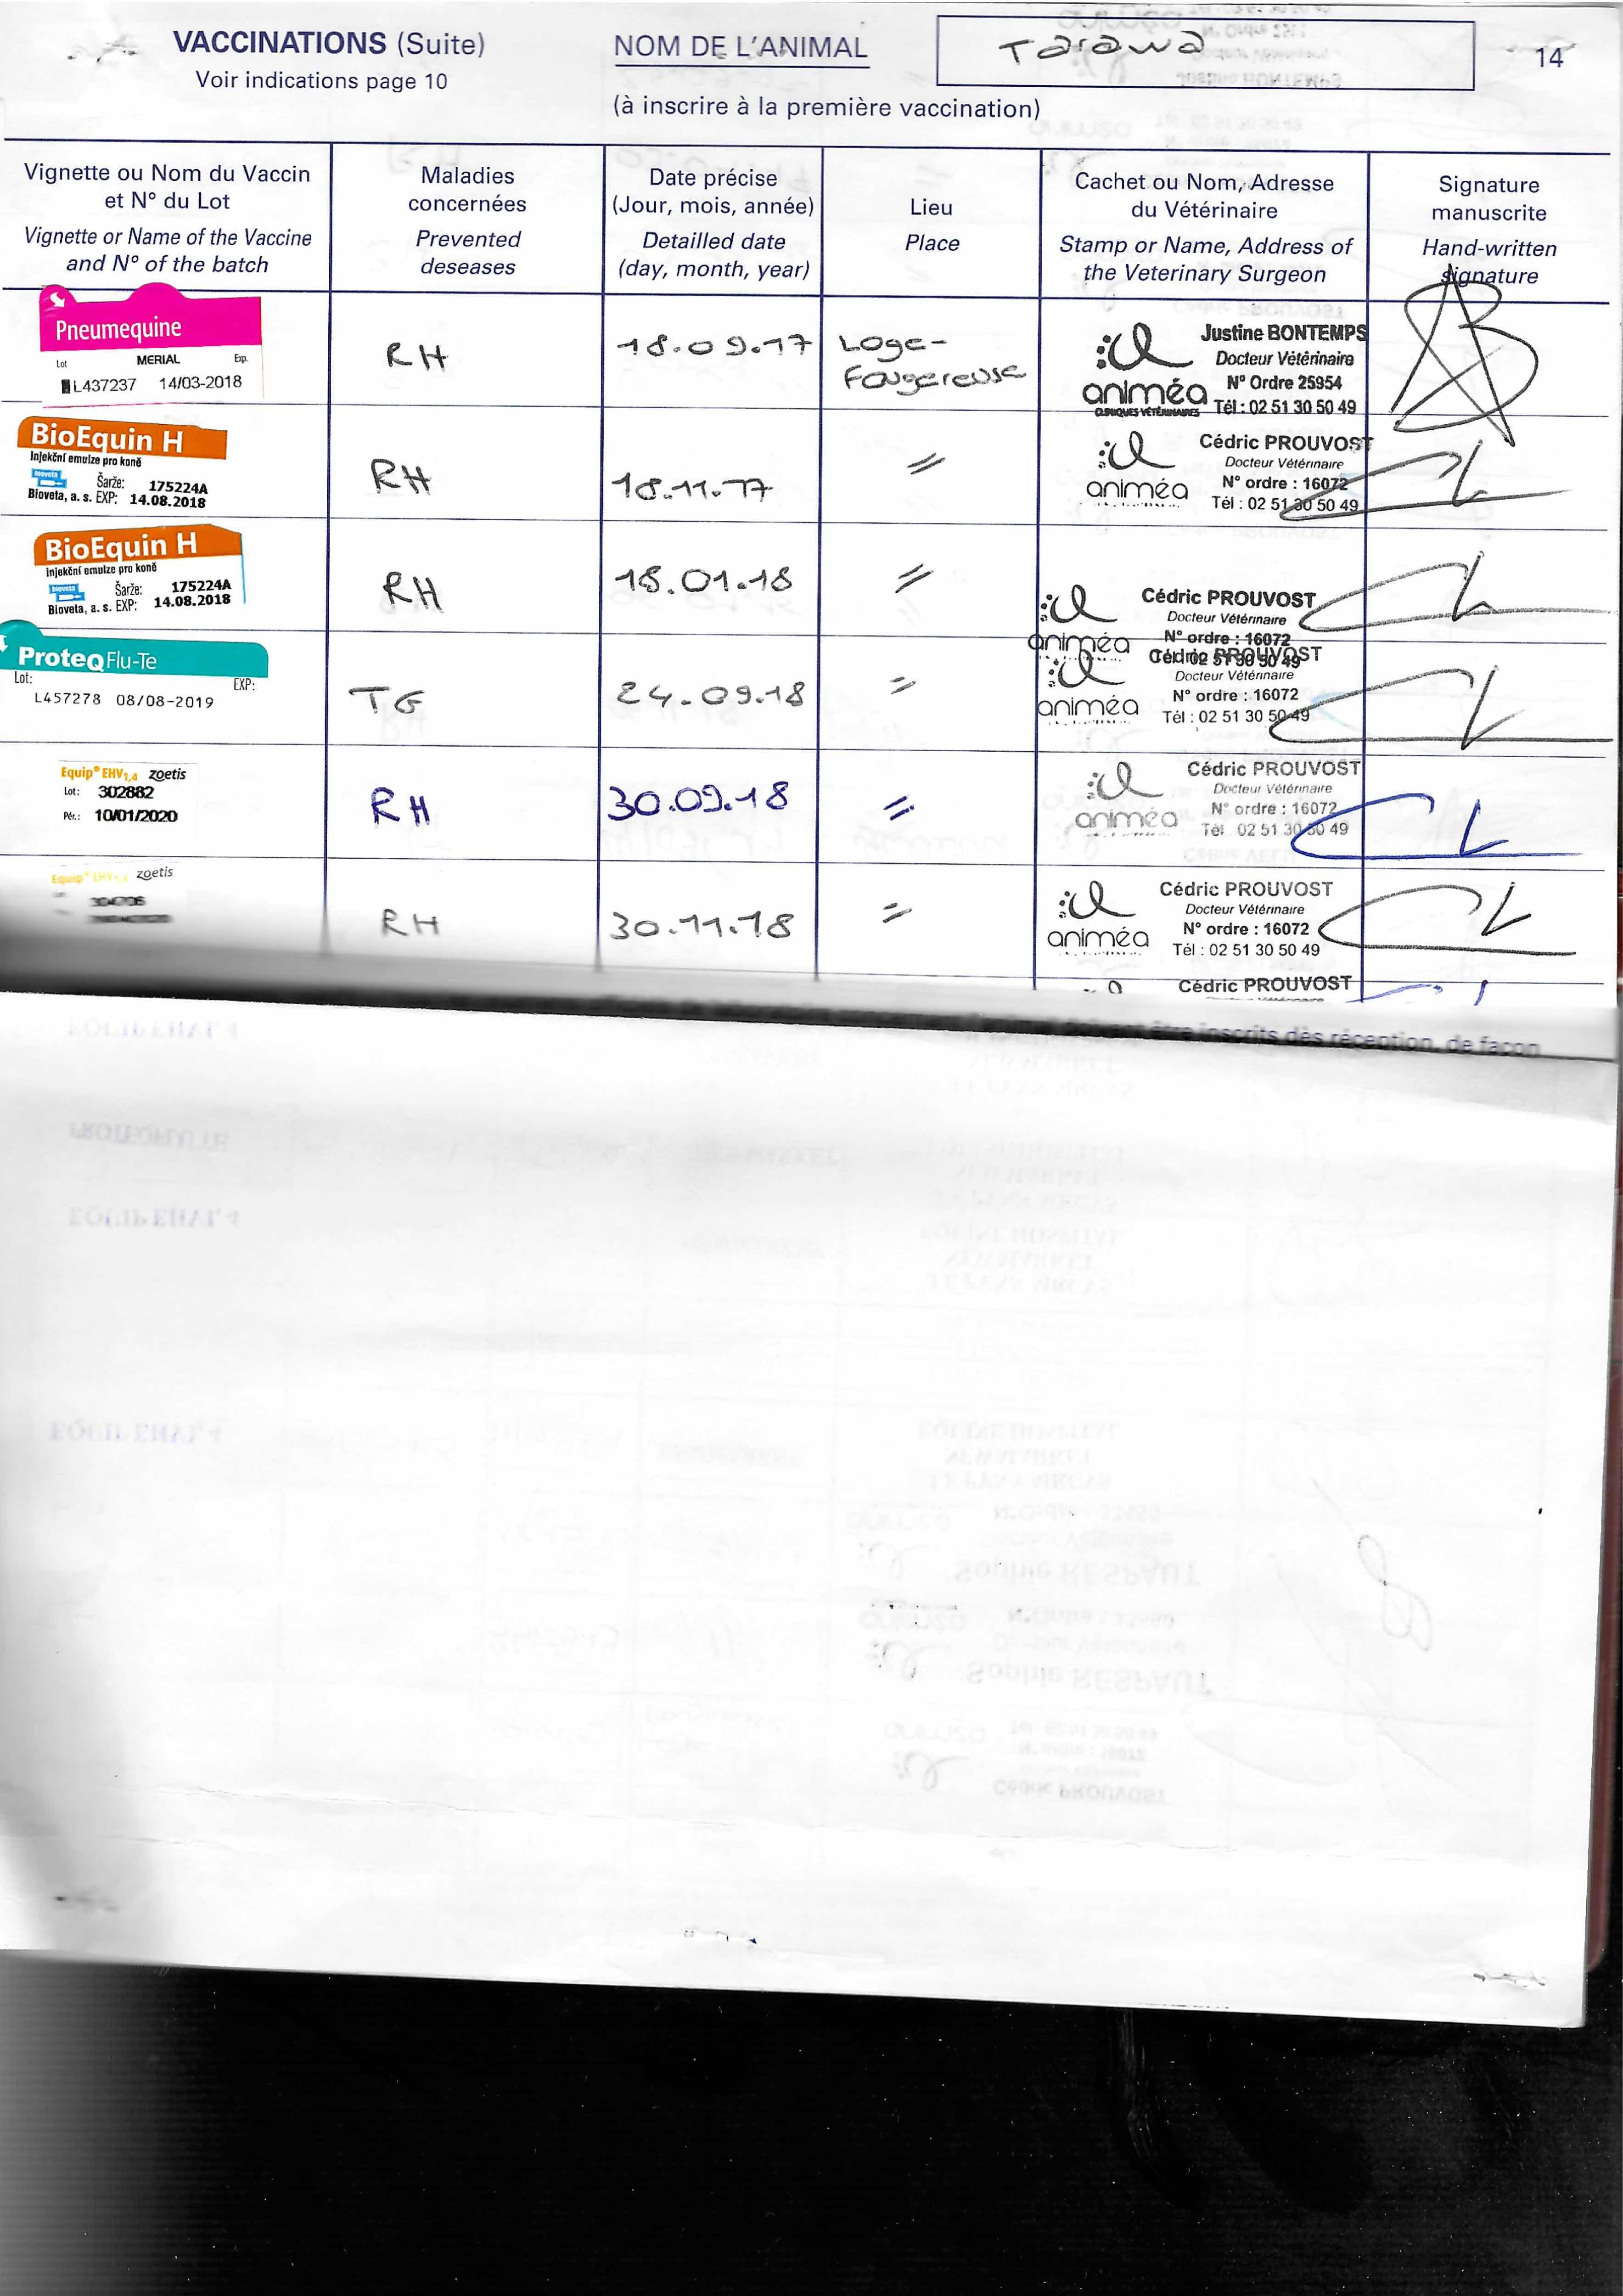 VACCINATIONS (Suite)
Voir indications page 10
NOM DE L'ANIMAL
Tarawa
14
(à inscrire à la première vaccination)
Vignette ou Nom du Vaccin
et N° du Lot
Vignette or Name of the Vaccine
and N° of the batch
Maladies
concernées
Prevented
deseases
Date précise
(Jour, mois, année)
Detailled date
(day, month, year)
Lieu
Place
Cachet ou Nom, Adresse
du Vétérinaire
Stamp or Name, Address of
the Veterinary Surgeon
Signature
manuscrite
Hand-written
signature
Pneumequine
Lot MERIAL Exp.
L437237 14/03-2018
RH
18.09.17
Loge-
Fougereuse
animéa
CLINIQUES VÉTÉRINAIRES
Justine BONTEMPS
Docteur Vétérinaire
N° Ordre 25954
Tél : 02 51 30 50 49
BioEquin H
Injekční emulze pro koně
bioveta Šarže: 175224A
Bioveta, a. s. EXP: 14.08.2018
RH
18.11.17
"
animéa
Cédric PROUVOST
Docteur Vétérinaire
N° ordre : 16072
Tél : 02 51 30 50 49
BioEquin H
Injekční emulze pro koně
bioveta Šarže: 175224A
Bioveta, a. s. EXP: 14.08.2018
RH
18.01.18
"
animéa
Cédric PROUVOST
Docteur Vétérinaire
N° ordre : 16072
Tél : 02 51 30 50 49
ProteqFlu-Te
Lot: EXP:
L457278 08/08-2019
TG
24.09.18
"
animéa
Cédric PROUVOST
Docteur Vétérinaire
N° ordre : 16072
Tél : 02 51 30 50 49
Equip® EHV1,4 zoetis
Lot: 302882
Pér.: 10/01/2020
RH
30.09.18
"
animéa
Cédric PROUVOST
Docteur Vétérinaire
N° ordre : 16072
Tél 02 51 30 50 49
Equip® EHV1,4 zoetis
RH
30.11.18
"
animéa
Cédric PROUVOST
Docteur Vétérinaire
N° ordre : 16072
Tél : 02 51 30 50 49
Cédric PROUVOST
être inscrits dès réception, de façon